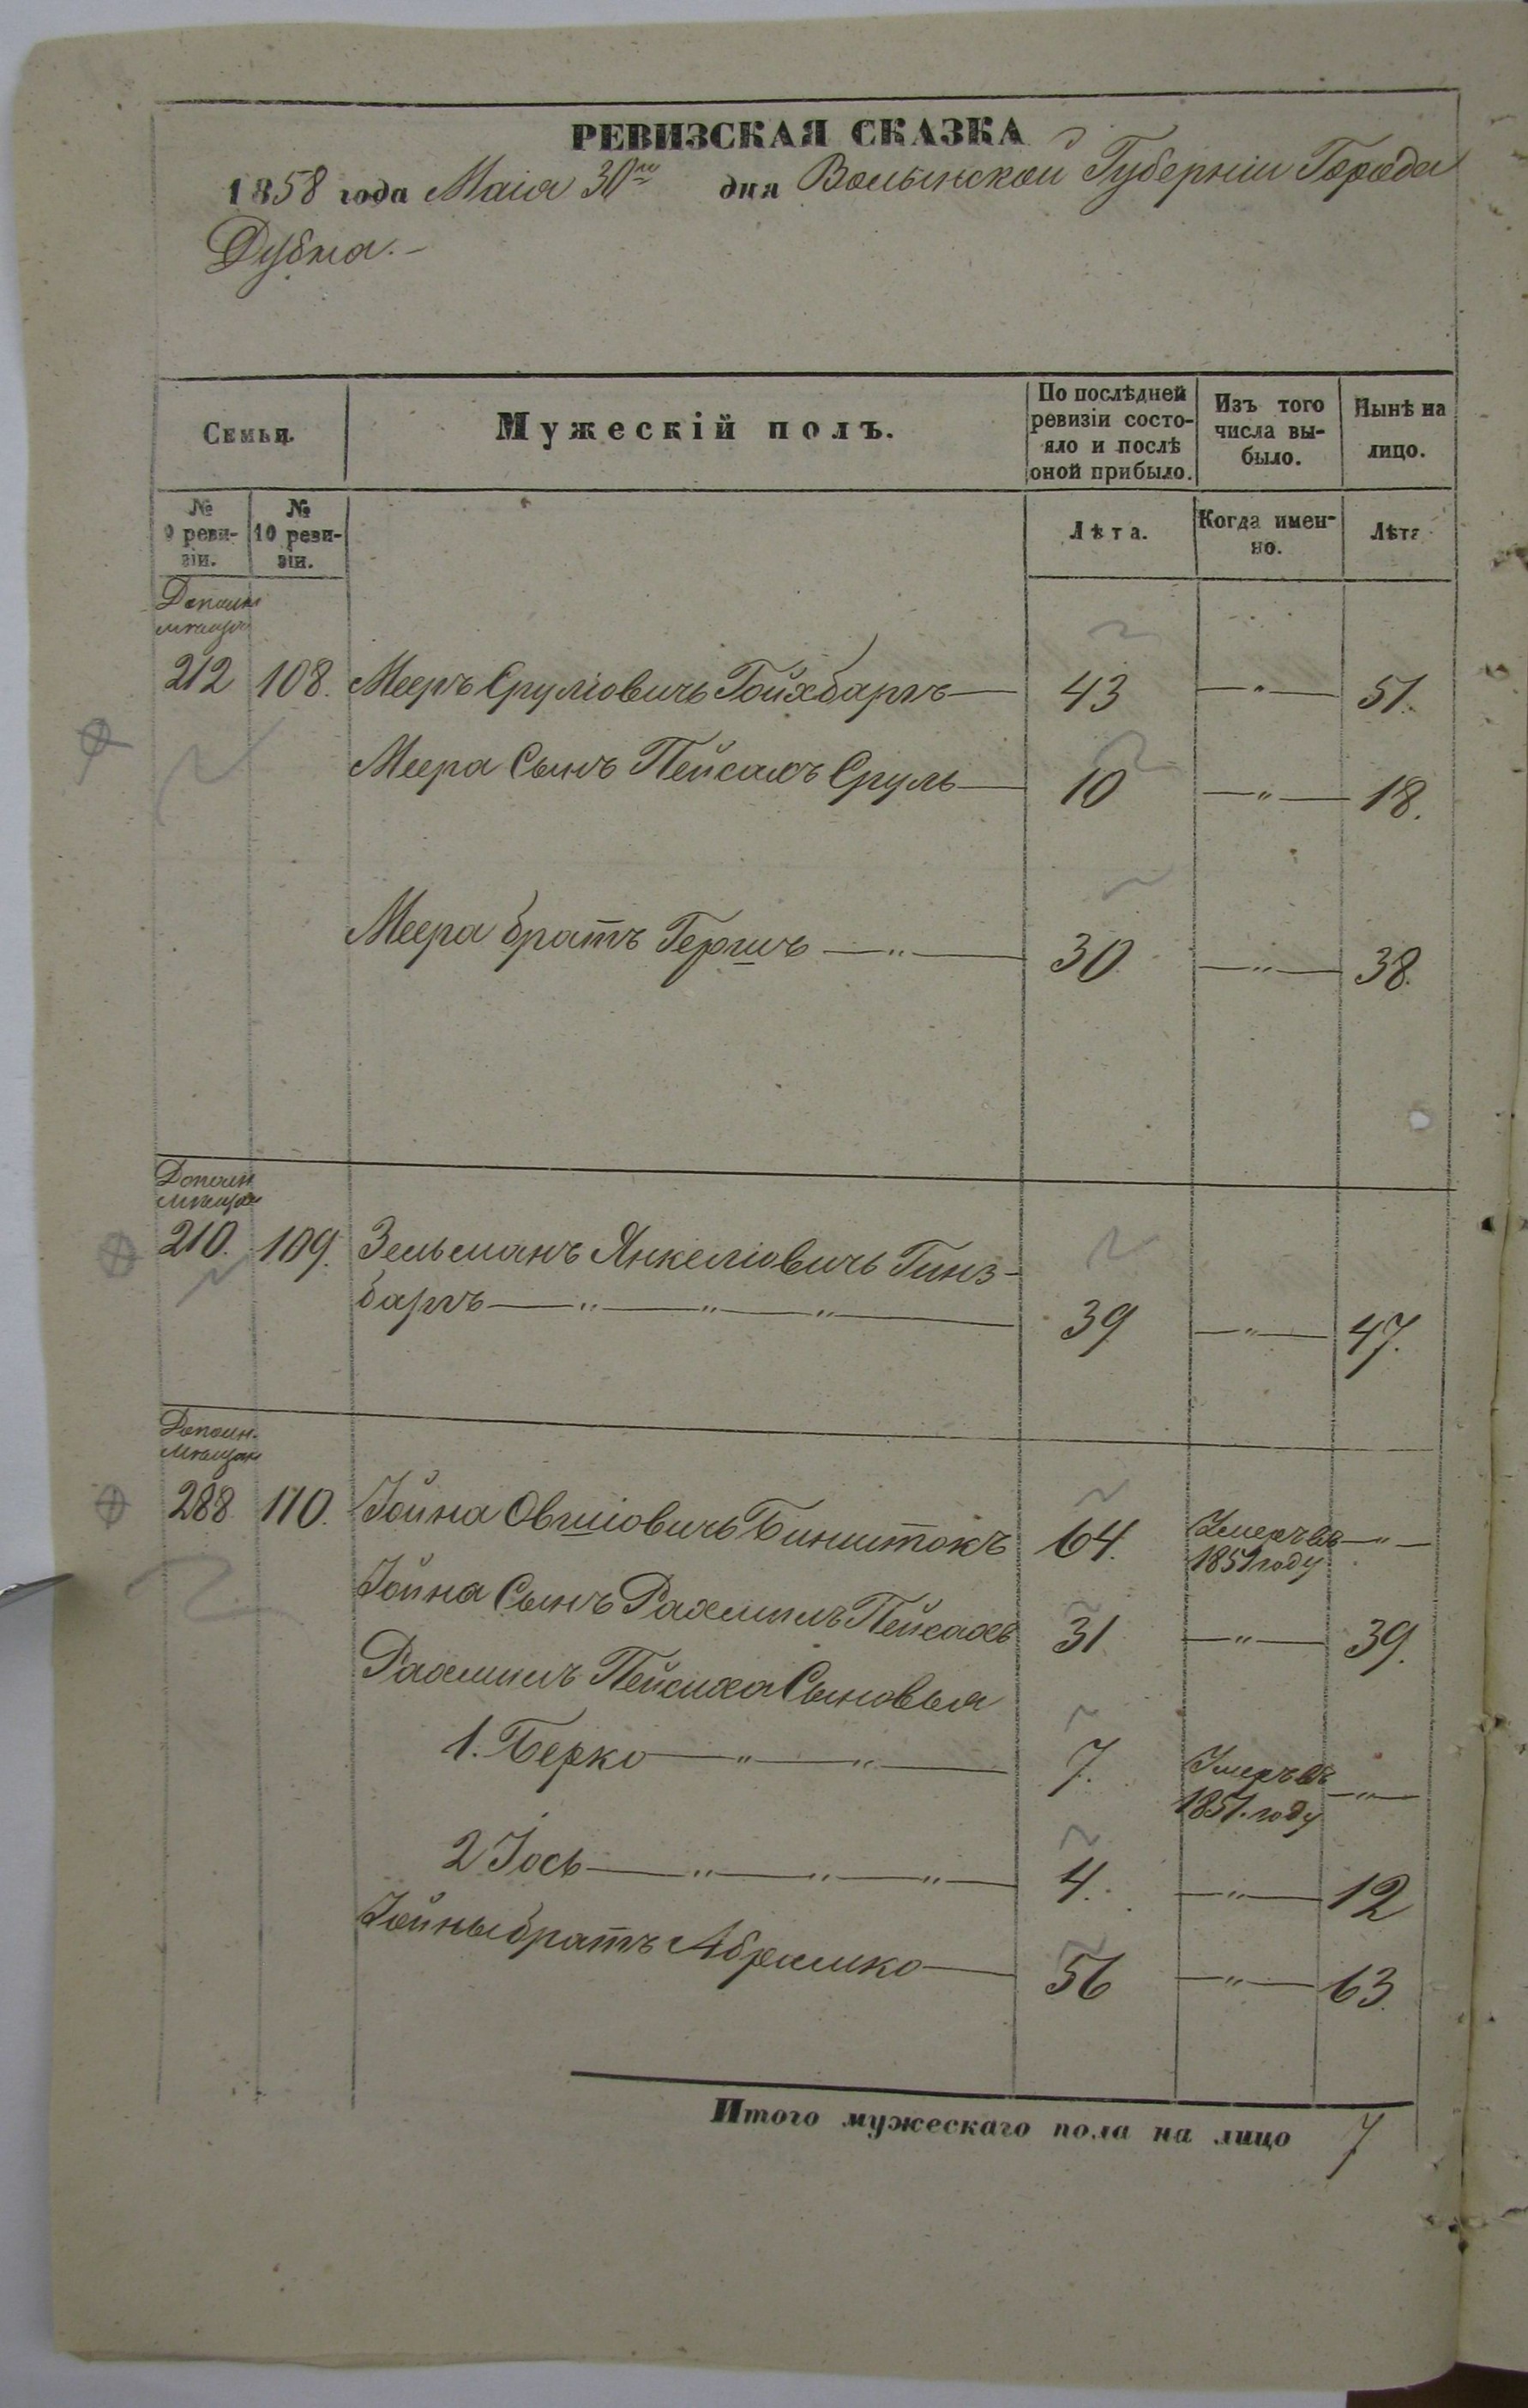 РЕВИЗСКАЯ СКАЗКА
1858 года Маія 30го дня Волынской Губерніи Города
Дубна.-
Семьи.
Мужескій полъ.
По послѣдней ревизіи состо-
яло и послѣ оной прибыло.
Изъ того числа вы-
было.
Нынѣ на лицо.
№ 9 реви-
зіи.
№ 10 реви-
зіи.
Лѣта.
Когда имен-
но.
Лѣта
Дополн
мѣщан
212 108. Мееръ Сруліовичь Гойхбаргъ 43 — " — 51.
Меера Сынъ Пейсахъ Сруль 10 — " — 18.
Меера братъ Гершъ — " — 30 — " — 38.
Дополн
мѣщан
210. 109. Зельманъ Янкеліовичь Гинз-
баргъ — " — " — " — 39 — " — 47.
Дополн.
мѣщан
288 110. Іойна Овшіовичь Бинштокъ 64. Умеръ въ — " —
1851 году
Іойна Сынъ Рахмилъ Пейсахъ 31 — " — 39.
Рахмилъ Пейсаха Сыновья
1. Берко — " — " — 7. Умеръ въ — " —
1857. году
2 Іось — " — " — " — 4. — " — 12
Іойны братъ Абрамко 56 — " — 63.
Итого мужескаго пола на лицо 7